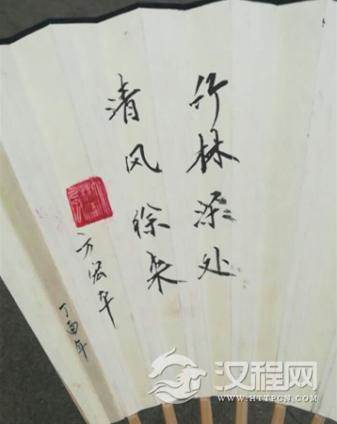 竹林深处
清风徐来
方宏年
丁酉年
汉程网
WWW.HTTPCN.COM